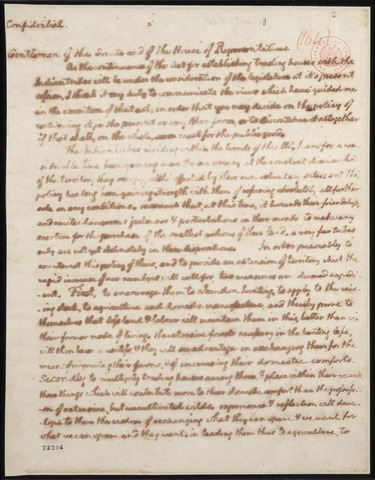 Confidential.
Gentlemen of the Senate and of the House of Representatives.
As the continuance of the act for establishing trading houses with the
Indian tribes will be under the consideration of the legislature at it's present
session, I think it my duty to communicate the views which have guided me
in the execution of that act; in order that you may decide on the policy of
continuing it, in the present or any other form, or to discontinue it altogether
if that shall, on the whole, seem most for the public good.
The Indian tribes residing within the limits of the US. have for a con-
-siderable time been growing more & more uneasy at the constant diminution
of the territory they occupy, effected by their own voluntary sales: and the
policy has long been gaining strength with them of refusing absolutely all further
sale on any conditions, insomuch that at this time, it hazards their friendship,
and excites dangerous jealousies & perturbations in their minds to make any
overture for the purchase of the smallest portions of their land. a very few tribes
only are not yet obstinately in these dispositions. In order peaceably to
counteract this policy of theirs, and to provide an extension of territory which the
rapid increase of our numbers will call for, two measures are deemed expedi-
-ent. First, to encourage them to abandon hunting, to apply to the rais-
-ing stock, to agriculture and domestic manufacture, and thereby prove to
themselves that less land & labour will maintain them in this, better than in
their former mode of living. the extensive forests necessary in the hunting life,
will then become useless, & they will see advantage in exchanging them for the
means of improving their farms, & of increasing their domestic comforts.
Secondly to multiply trading houses among them, & place within their reach
those things which will contribute more to their domestic comfort than the possession
of extensive, but uncultivated wilds. experience & reflection will deve-
-lope to them the wisdom of exchanging what they can spare & we want, for
what we can spare and they want. in leading them thus to agriculture, to
22204